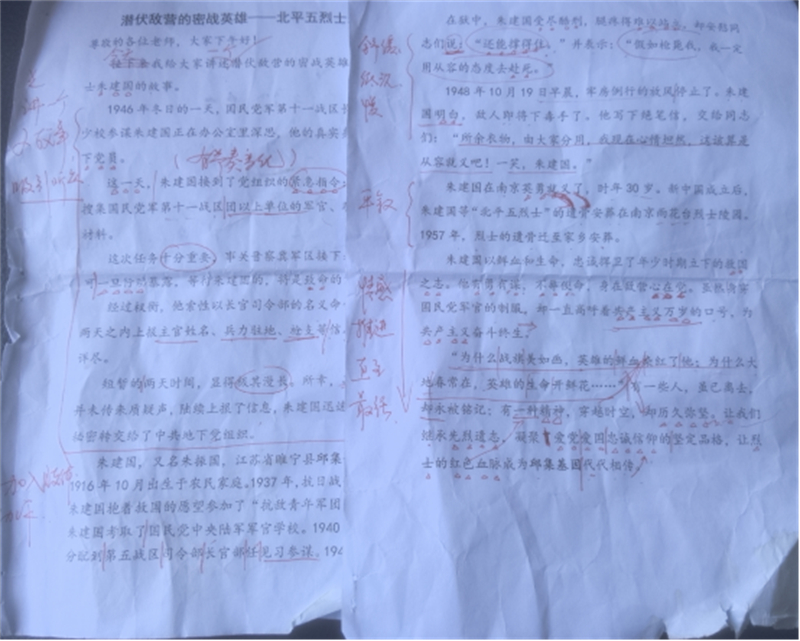 潜伏敌营的密战英雄——北平五烈士
尊敬的各位老师，大家下午好！
接下来我给大家讲述潜伏敌营的密战英雄
士朱建国的故事。
1946年冬日的一天，国民党军第十一战区长
少校参谋朱建国正在办公室里深思，他的真实身
下党员。
这一天，朱建国接到了党组织的紧急指令：
搜集国民党军第十一战区团以上单位的军官、
材料。
这次任务十分重要，事关晋察冀军区接下
一旦身份暴露，等待朱建国的，将是致命的
经过权衡，他索性以长官司令部的名义命
两天之内上报主官姓名、兵力驻地、给主等信
详尽。
短暂的两天时间，显得极其漫长。所幸，
年未传来质疑声，陆续上报了信息，朱建国迅速
给密转交给了中共地下党组织。
朱建国，又名朱振国，江苏省睢宁县邱集
1916年10月出生于农民家庭。1937年，抗日战
朱建国抱着救国的愿望参加了“抗敌青年军团
朱建国考取了国民党中央陆军军官学校。1940
分配到第五战区司令部长官部任见习参谋。194
在狱中，朱建国受尽酷刑，腿疼得难以站立，却安慰同
志们说：“还能撑得住。”并表示：“假如枪毙我，我一定
用从容的态度去赴死。”
1948年10月19日早晨，牢房例行的放风停止了。朱建
国明白，敌人即将下毒手了。他写下绝笔信，交给同志
们：“所余衣物，由大家分用，我现在心情坦然，这该算是
从容就义吧！一笑，朱建国。”
朱建国在南京英勇就义了，时年30岁。新中国成立后，
朱建国等“北平五烈士”的遗骨安葬在南京雨花台烈士陵园。
1957年，烈士的遗骨迁至家乡安葬。
朱建国以鲜血和生命，忠诚得卫了年少时期立下的救国
之志。他有勇有谋，不辱使命，身在敌营心在党。虽然身穿
国民党军官的制服，却一直高呼着共产主义万岁的口号，为
共产主义奋斗终生。
“为什么战旗美如画，英雄的鲜血染红了他；为什么大
地春常在，英雄的生命开鲜花……”有一些人，虽已离去，
却永被铭记；有一种精神，穿越时空，却历久弥坚，让我们
继承先烈遗志，凝聚爱党爱国忠诚信仰的坚定品格，让烈
士的红色血脉成为邱集基因代代相传。
平叙
情感
推进
直至
最后